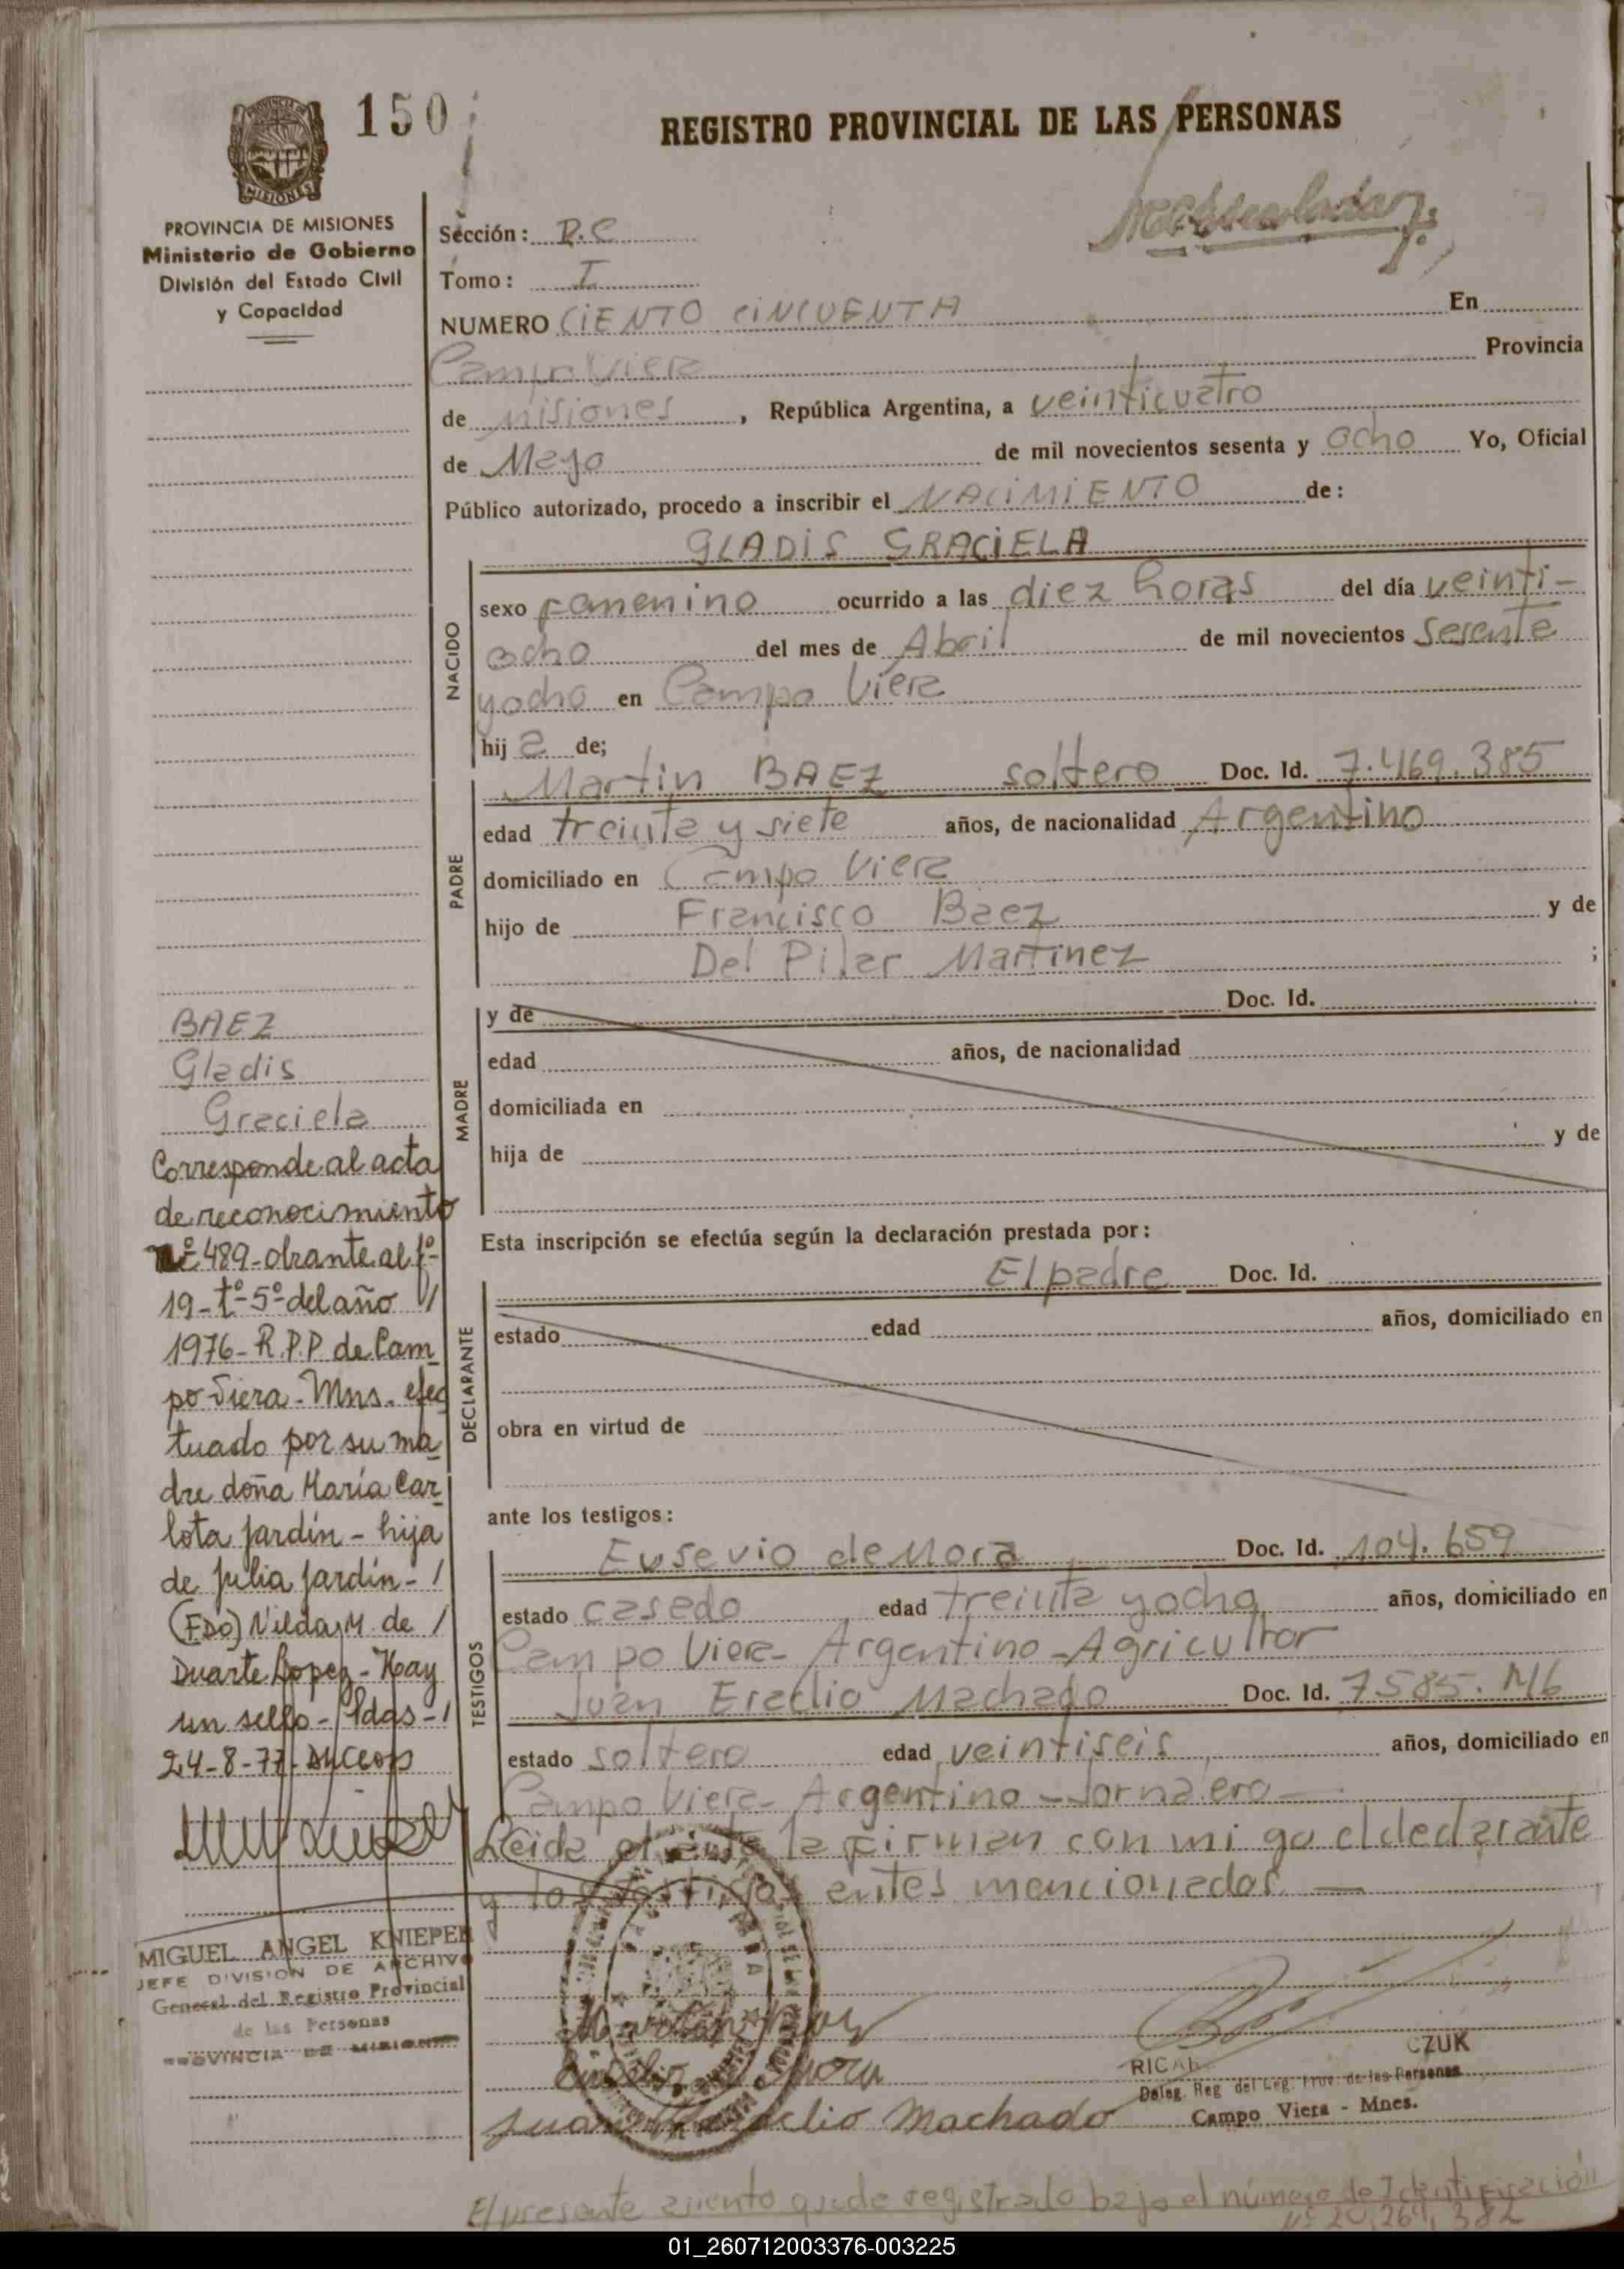 150
REGISTRO PROVINCIAL DE LAS PERSONAS
PROVINCIA DE MISIONES
Ministerio de Gobierno
División del Estado Civil
y Capacidad
Sección: R.C
Tomo: I
NUMERO CIENTO CINCUENTA En
Campo Viera Provincia
de Misiones, República Argentina, a veinticuatro
de Mayo de mil novecientos sesenta y ocho Yo, Oficial
Público autorizado, procedo a inscribir el NACIMIENTO de:
GLADIS GRACIELA
NACIDO
sexo femenino ocurrido a las diez horas del día veinti-
ocho del mes de Abril de mil novecientos sesenta
y ocho en Campo Viera
hija de;
PADRE
Martin BAEZ soltero Doc. Id. 7.469.385
edad treinta y siete años, de nacionalidad Argentino
domiciliado en Campo Viera
hijo de Francisco Baez y de
Del Pilar Martinez ;
MADRE
y de Doc. Id.
edad años, de nacionalidad
domiciliada en
hija de y de
Esta inscripción se efectúa según la declaración prestada por:
DECLARANTE
El padre Doc. Id.
estado edad años, domiciliado en
obra en virtud de
ante los testigos:
TESTIGOS
Eusevio de Mora Doc. Id. 104.659
estado casado edad treinta y ocho años, domiciliado en
Campo Viera - Argentino - Agricultor
Juan Eraclio Machado Doc. Id. 7585.
estado soltero edad veintiseis años, domiciliado en
Campo Viera - Argentino - Jornalero -
Leida el acta la firman con migo el declarante
y los testigos antes mencionados -
Juan Heraclio Machado
RICAR CZUK
Deleg. Reg. del Reg. Prov. de las Personas
Campo Viera - Mnes.
BAEZ
Gladis
Graciela
Corresponde al acta
de reconocimiento
Nº 489 - obrante al fº-
19 - tº - 5º - del año //
1976 - R.P.P. de Cam
po Viera - Mns. efec
tuado por su ma
dre doña María Car
lota Jardín - hija
de Julia Jardín - /
(FDO) Nilda M. de /
Duarte Lopez - Hay
un sello - Pdas - /
24-8-77
MIGUEL ANGEL KNIEPER
JEFE DIVISION DE ARCHIVO
General del Registro Provincial
de las Personas
PROVINCIA DE MISIONES
El presente asiento queda registrado bajo el número de Identificación
Nº 20.264.382
01_260712003376-003225